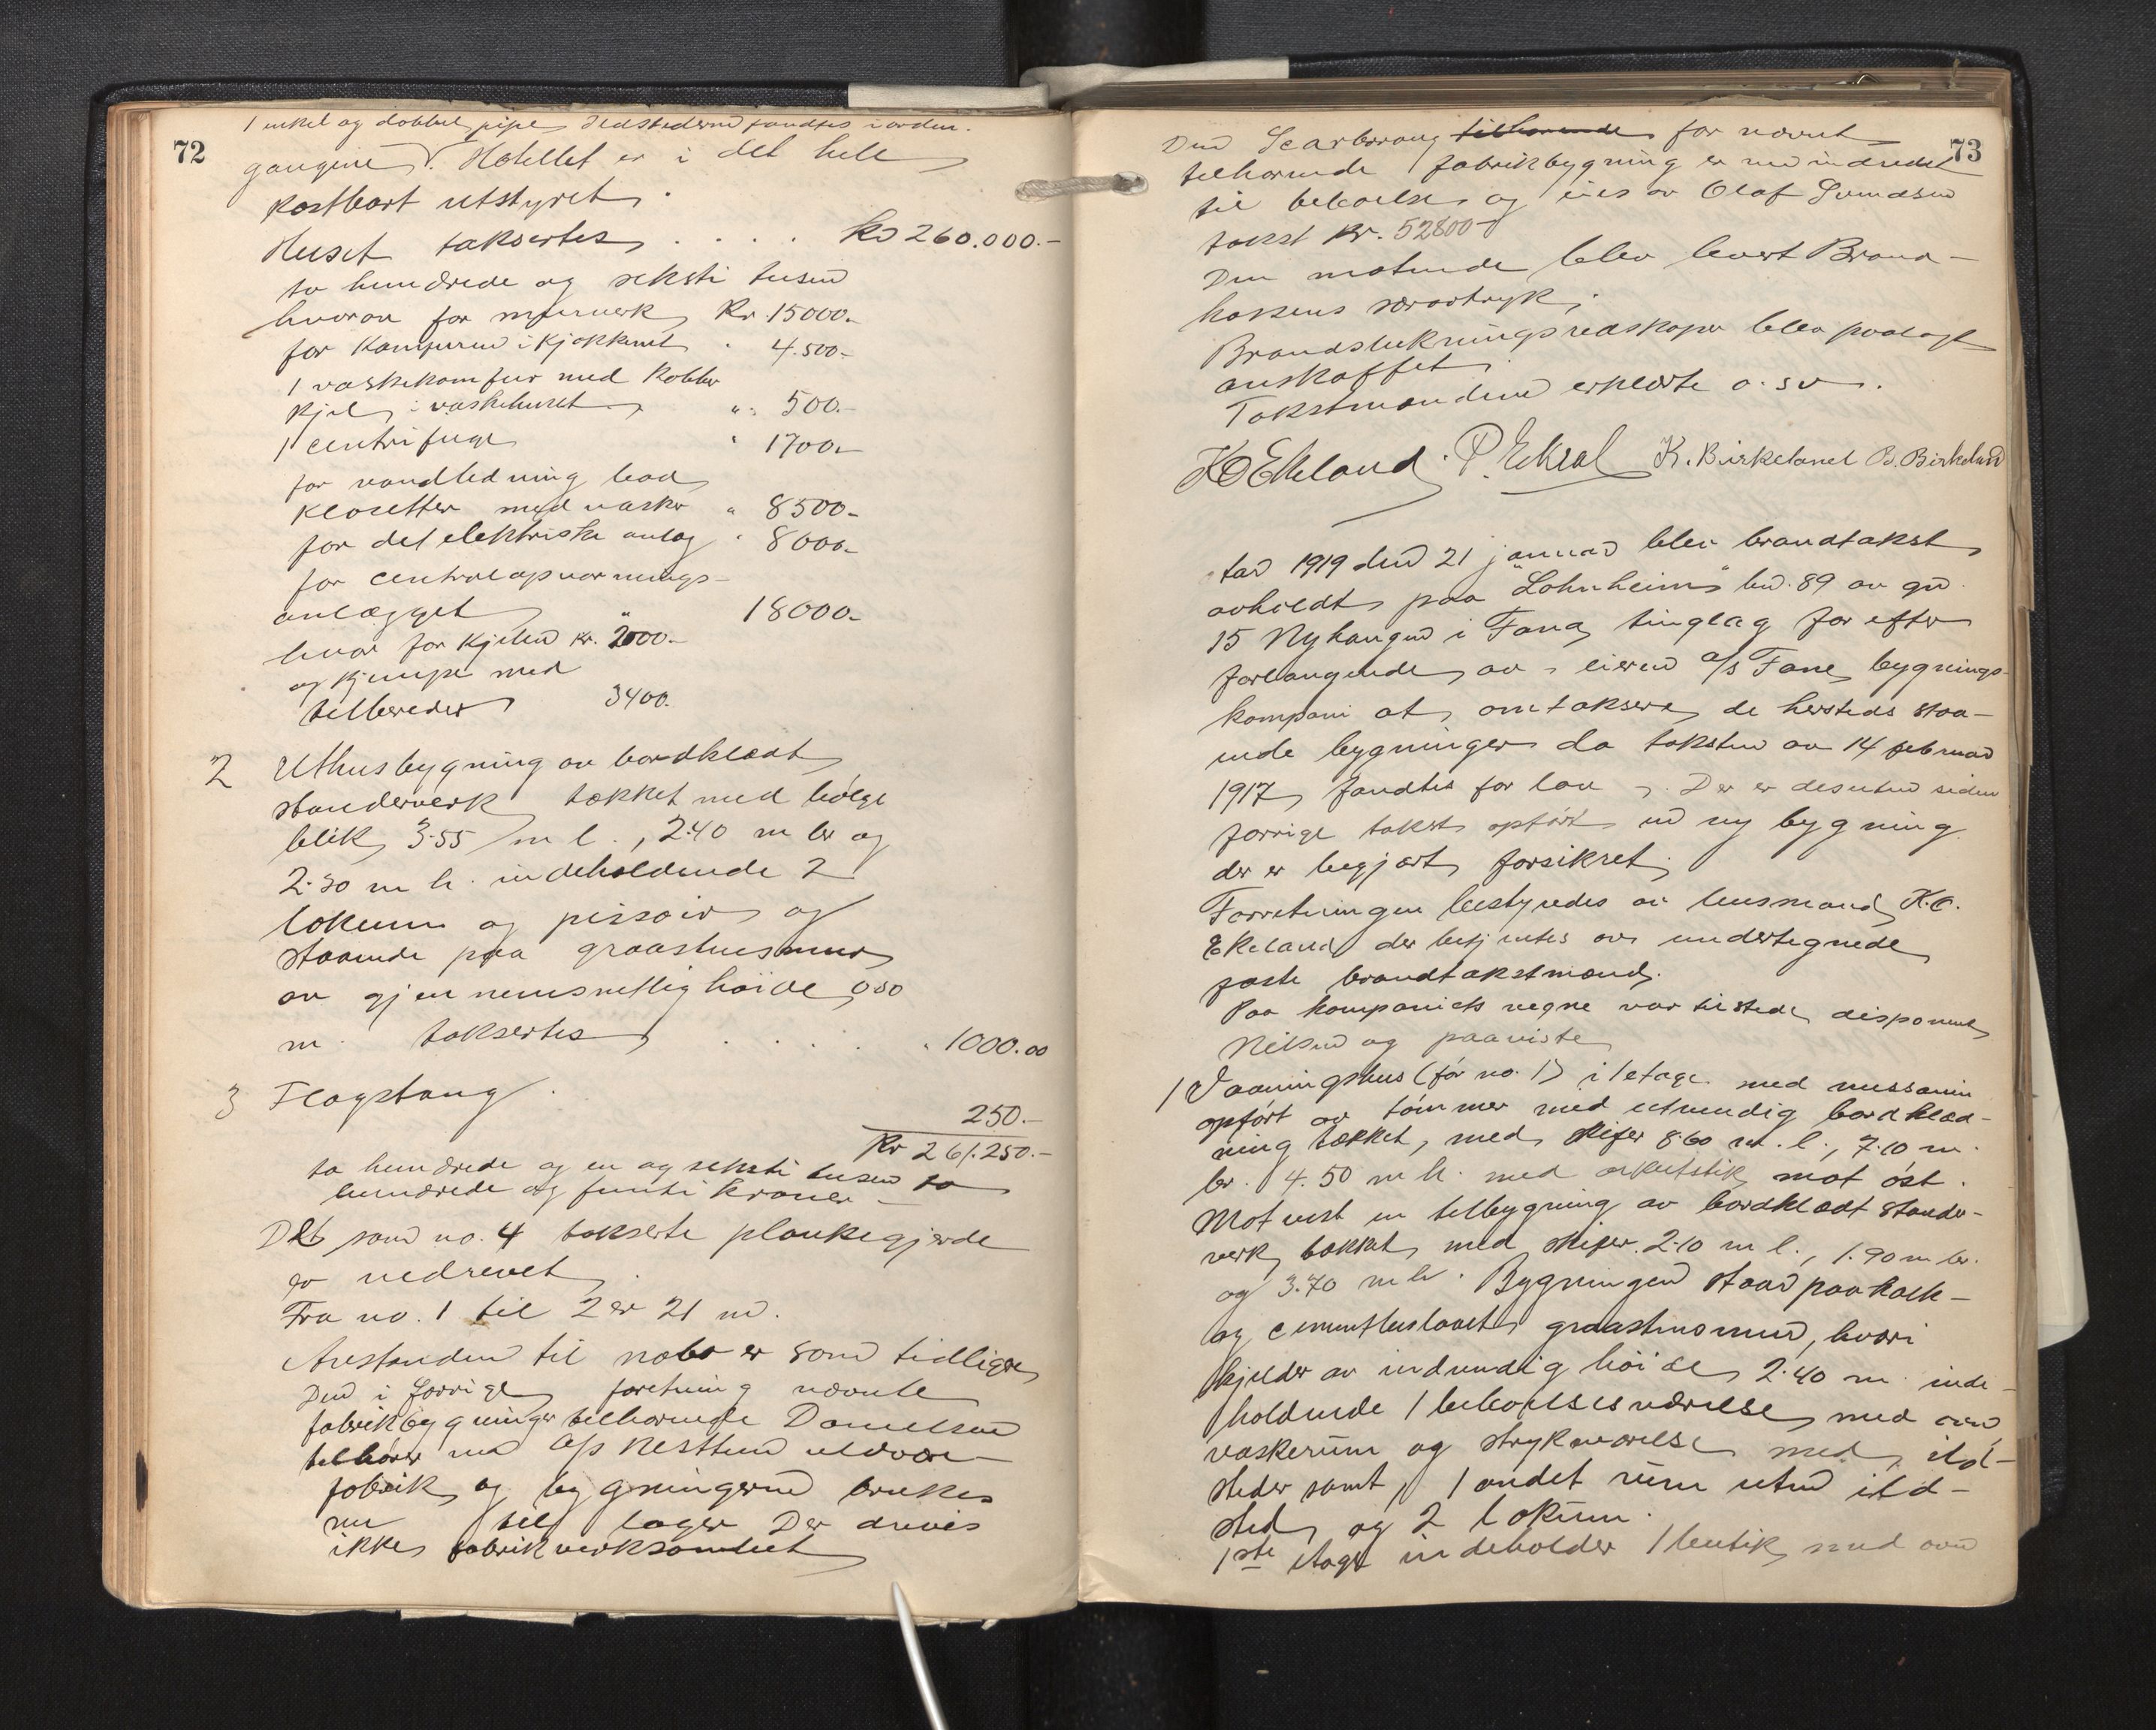 72
1 enkel og dobbel pipe Ildstederne fandtes i orden.
gangene. Hotellet er i det hele
kostbart utstyret.
Huset taksertes . . . . Kr 260.000.-
to hundrede og seksti tusen
hvorav for murverk Kr. 15000.-
for Komfuren i kjøkkenet " 4.500.-
1 vaskekomfur med Kobber
kjel i vaskehuset " 500.-
1 centrifuge " 1700.-
for vandledning bad
klosetter med vaske " 8500.-
for det elektriske anlæg " 8000.-
for centralopvarmnings-
anlægget " 18000.-
hvor for kjelen kr. 2000.-
og med
tilbereder 3400.
2 Uthusbygning av bordklædt
standerverk tækket med bølge
blik 3.55 m l., 2.40 m br og
2.30 m h. indeholdende 2
lokum og pissoir og
staaende paa graastensmur
av gjennemsnitlig høide 0,80
m. taksertes . . . . " 1000.00
3 Flagstang. 250.-
Kr 261.250.-
to hundrede og en og seksti tusen to
hundrede og femti kroner
Det som no. 4 takserte plankegjerde
er nedrevet.
Fra no. 1 til 2 er 21 m.
Avstanden til nabo er som tidligere
Den i forrige forretning nævnte
fabrikbygninger tilhørende Danielsen
tilhører nu A/S Nesttun uldvare-
fabrik og bygningerne brukes
nu til lager Der drives
ikke fabrikverksomhet
73
Den Scarboroug tilhørende før nævnt
tilhørende fabrikbygning er nu indredet
til beboelse og eies av Olaf Svendsen
takst Kr. 52800-
Den møtende blev levert Brand-
kassens særavtryk.
Brandslukningsredskaper blev paalagt
anskaffet.
Takstmændene erklærte o. s v.
KO Ekeland. P. Ekral K. Birkeland B. Birkeland
Aar 1919 den 21 januar blev brandtakst
avholdt paa "Lohnheim" bn. 89 av gn
15 Nyhaugen i Fana tinglag for efter
forlangende av eieren a/s Fane bygnings-
kompani at omtaksere de hersteds staa-
ende bygninger da taksten av 14 februar
1917 fandtes for lav. Der er desuten siden
forrige takst opført en ny bygning
der er begjært forsikret.
Forretningen bestyredes av lensmand K.O.
Ekeland der betjentes av undertegnede
faste brandtakstmænd.
Paa kompaniets vegne var tilstede disponent
Nilsen og paaviste
1 Vaaningshus (før no. 1) i 1 etage med messanin
opført av tømmer med utvendig bordklæd-
ning tækket med skifer 8.60 m. l., 7.10 m.
br. 4.50 m h. med arkutstik mot øst.
Mot vest en tilbygning av bordklædt stander-
verk tækket med skifer 2.10 m l., 1.90 m br.
og 3.70 m h. Bygningen staar paa kalk-
og cementpusset graastensmur, hvori
kjelder av indvendig høide 2.40 m. inde-
holdende 1 beboelsesværelse med ovn
vaskerum og strykeværelse med ild-
steder samt 1 andet rum uten ild-
sted og 2 lokum.
1ste etage indeholder 1 butik med ovn